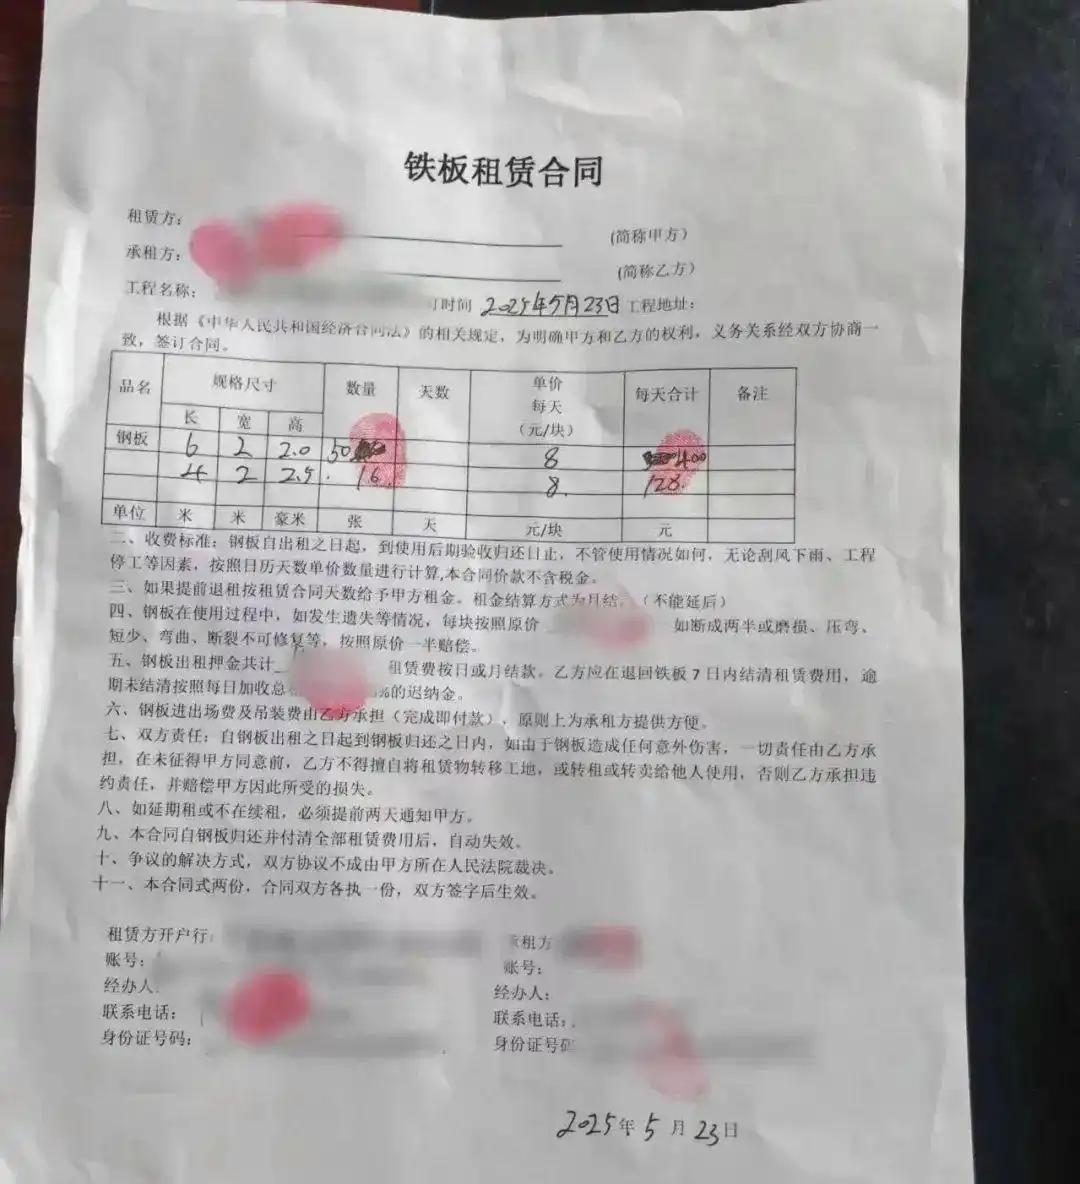 铁板租赁合同
租赁方：
(简称甲方)
承租方：
(简称乙方)
工程名称： 订时间 2025年5月23日 工程地址：
根据《中华人民共和国经济合同法》的相关规定，为明确甲方和乙方的权利，义务关系经双方协商一
致，签订合同。
品名 规格尺寸 数量 天数 单价 每天 （元/块） 每天合计 备注
长 宽 高
钢板 6 2 2.0 50 8 400
4 2 2.5 16 8 128
单位 米 米 豪米 张 天 元/块 元
二、收费标准：钢板自出租之日起，到使用后期验收归还日止，不管使用情况如何，无论刮风下雨、工程
停工等因素，按照日历天数单价数量进行计算,本合同价款不含税金。
三、如果提前退租按租赁合同天数给予甲方租金。租金结算方式为月结。（不能延后）
四、钢板在使用过程中，如发生遗失等情况，每块按照原价 如断成两半或磨损、压弯、
短少、弯曲、断裂不可修复等，按照原价一半赔偿。
五、钢板出租押金共计 租赁费按日或月结款。乙方应在退回铁板 7 日内结清租赁费用，逾
期未结清按照每日加收总 %的迟纳金。
六、钢板进出场费及吊装费由乙方承担（完成即付款），原则上为承租方提供方便。
七、双方责任：自钢板出租之日起到钢板归还之日内，如由于钢板造成任何意外伤害，一切责任由乙方承
担，在未征得甲方同意前，乙方不得擅自将租赁物转移工地，或转租或转卖给他人使用，否则乙方承担违
约责任，并赔偿甲方因此所受的损失。
八、如延期租或不在续租，必须提前两天通知甲方。
九、本合同自钢板归还并付清全部租赁费用后，自动失效。
十、争议的解决方式，双方协议不成由甲方所在人民法院裁决。
十一、本合同式两份，合同双方各执一份，双方签字后生效。
租赁方开户行: 承租方
账号： 账号：
经办人 经办人：
联系电话： 联系电话：
身份证号码： 身份证号码
2025年5月23日